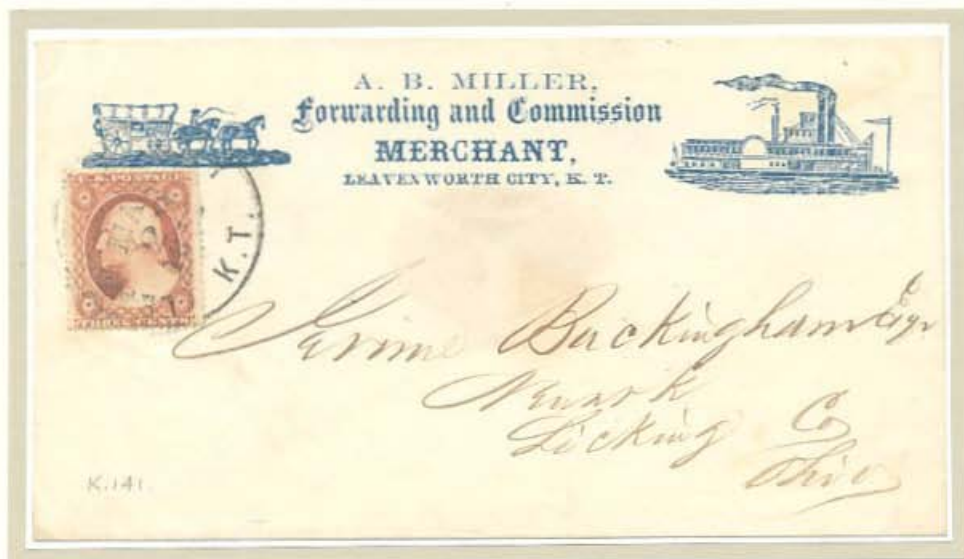 A. B. MILLER,
Forwarding and Commission
MERCHANT,
LEAVENWORTH CITY, K. T.
U.S. POSTAGE
THREE CENTS
K.T.
Buckingham Esqr
Newark
Licking Co
Ohio
K.141.